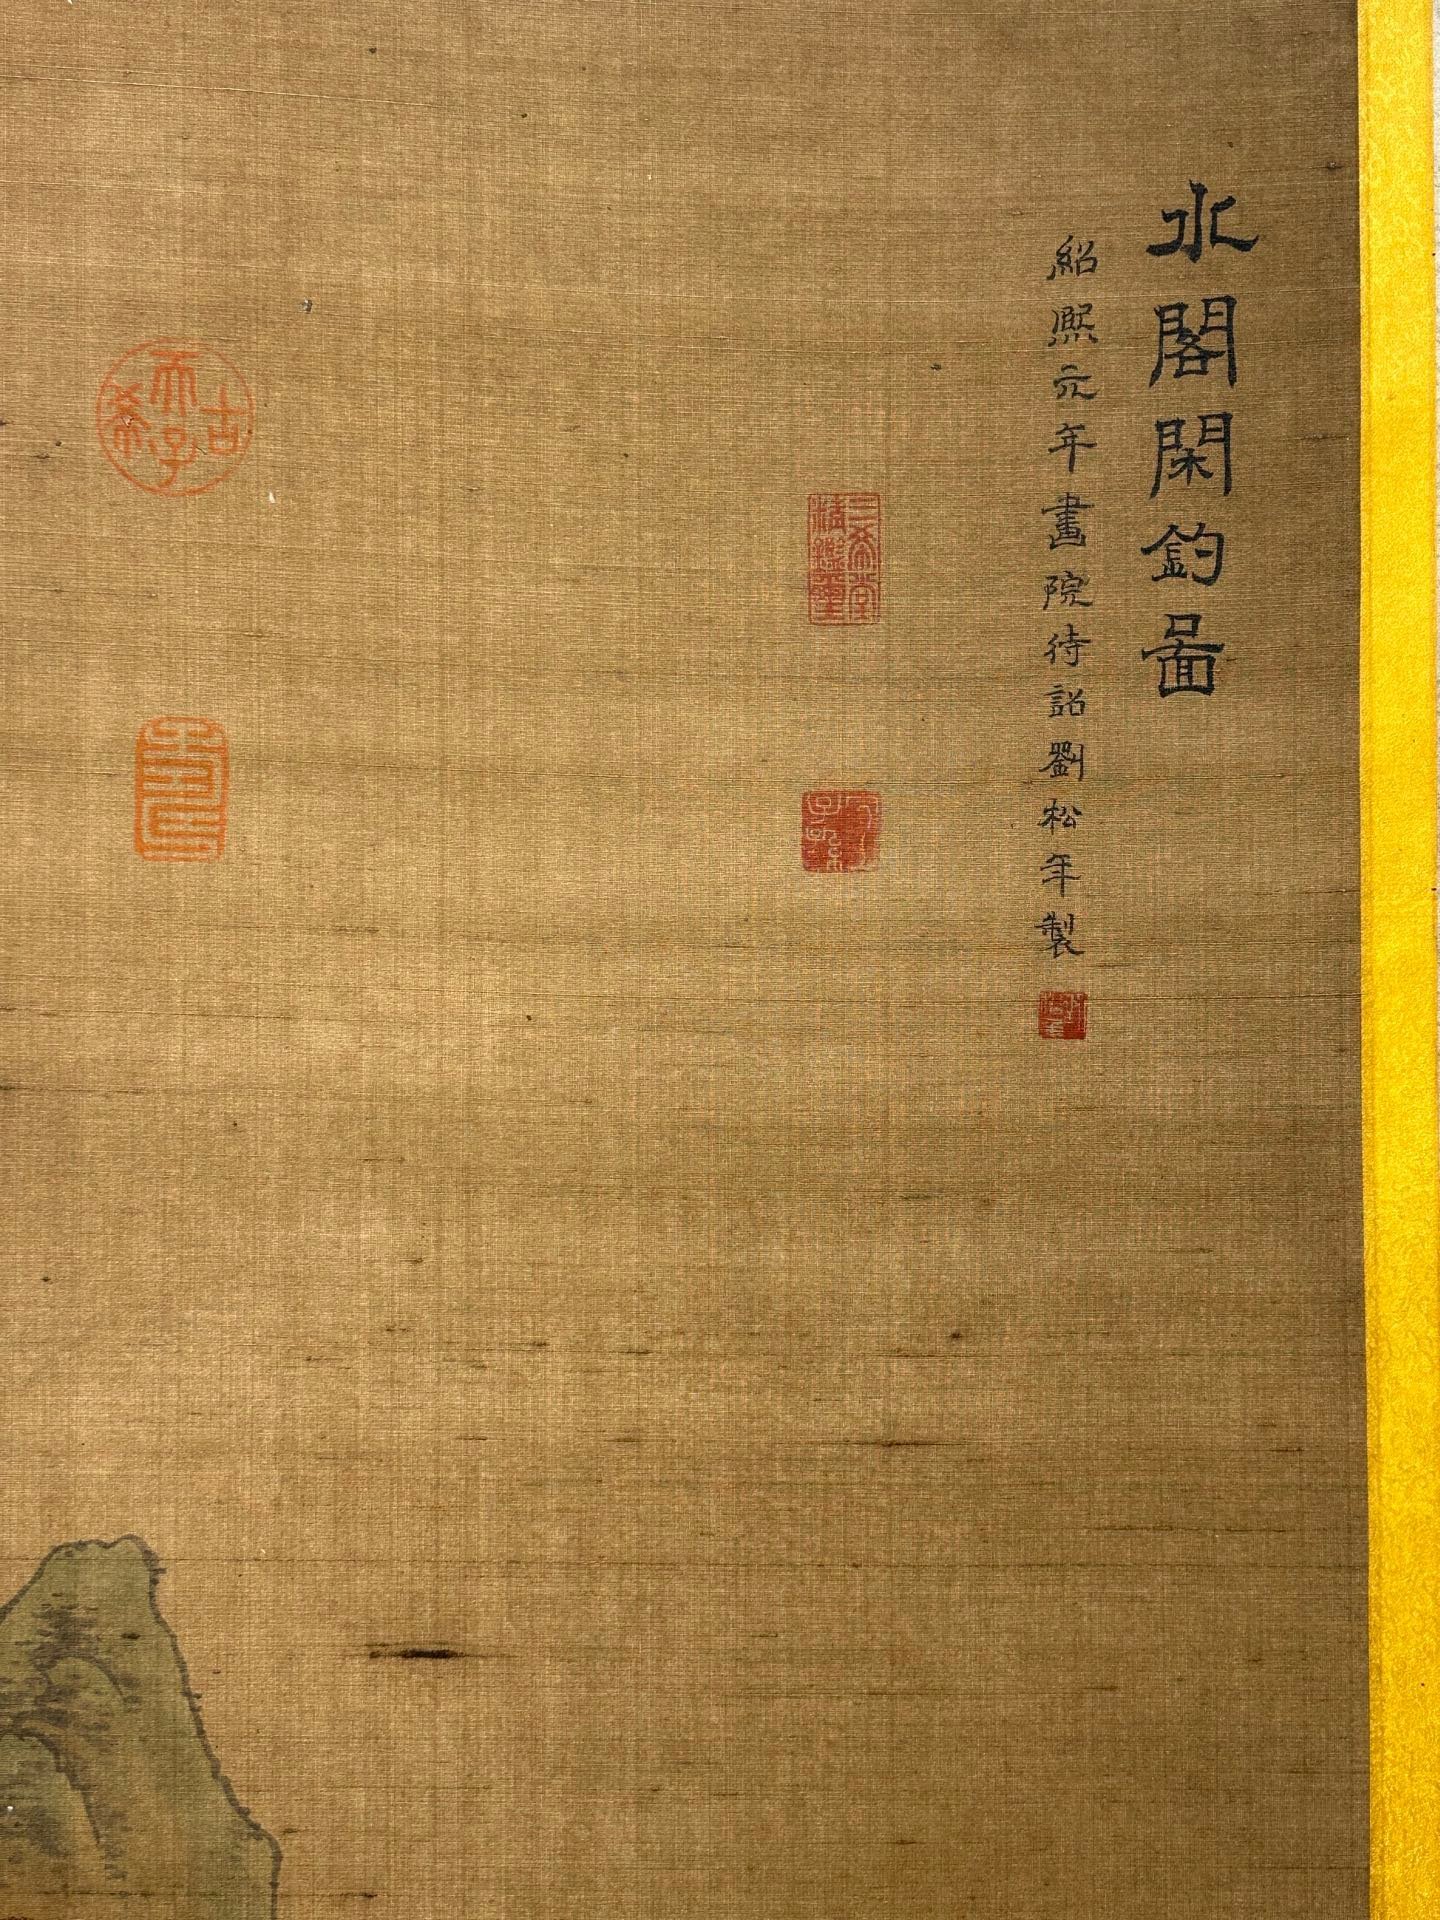 水閣閑釣啚
紹熙元年畫院待詔劉松年製
三希堂
精鑑璽
宜
子孫
古希天子
壽